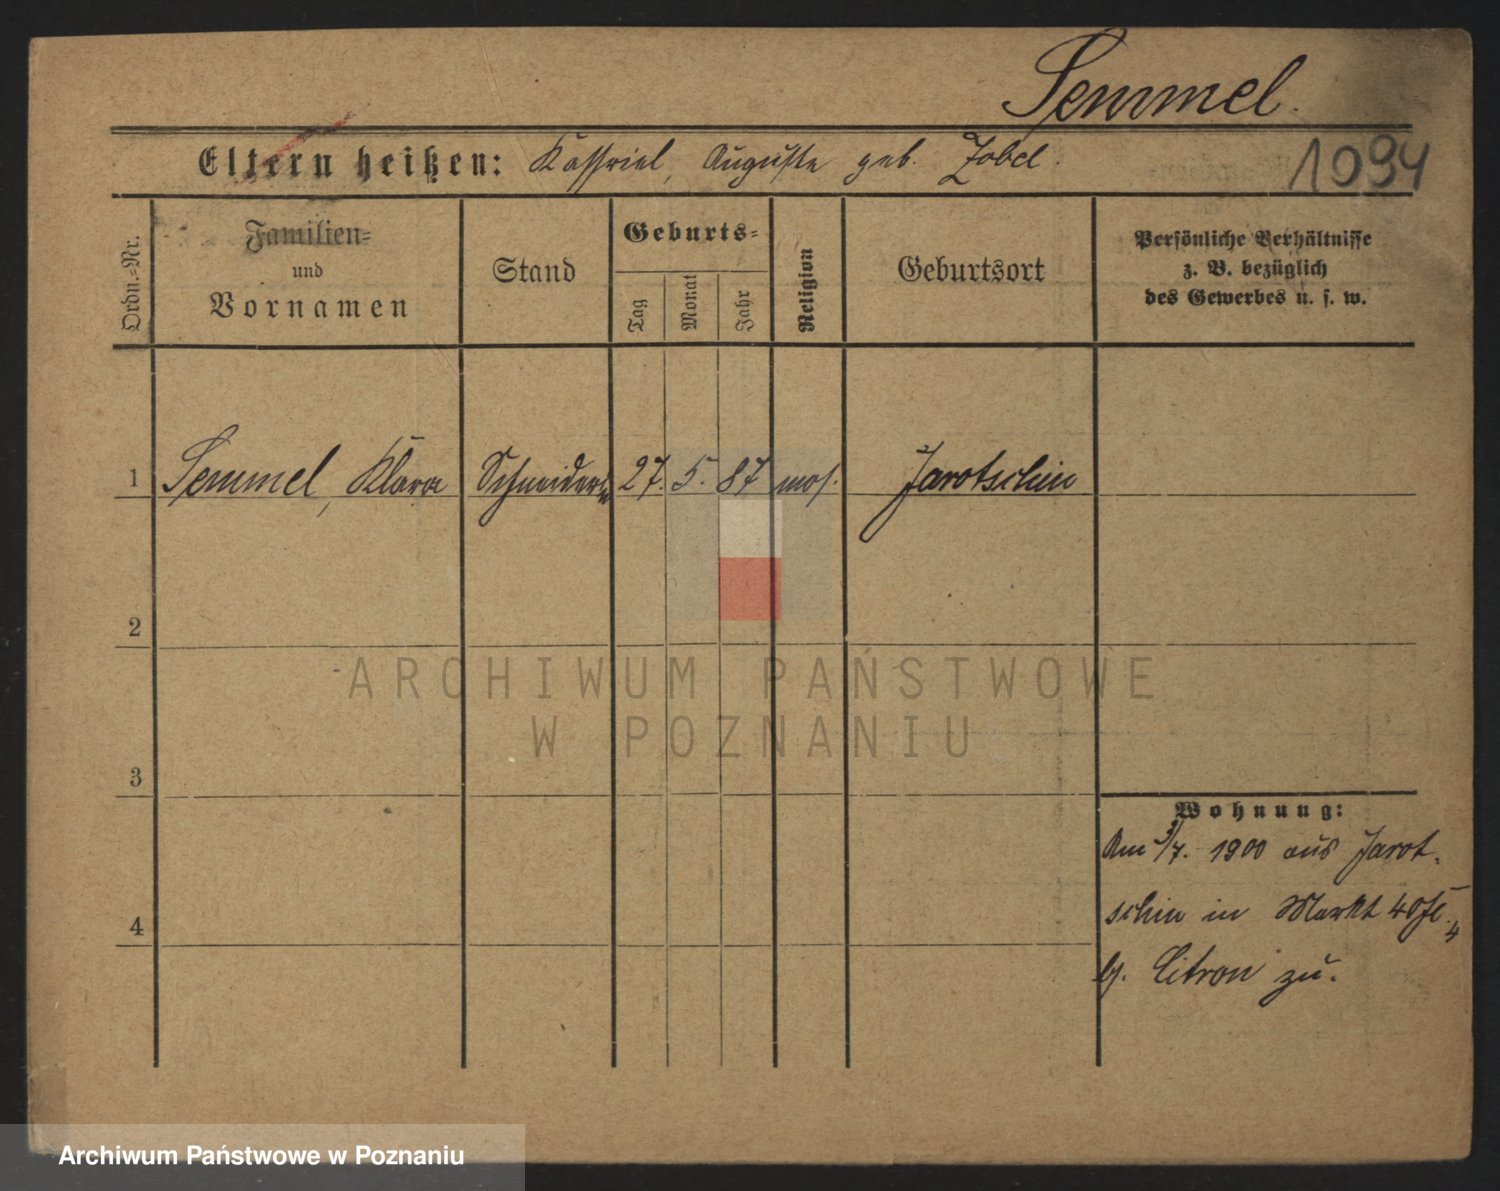 Semmel.
Eltern heißen: Kassriel, Auguste geb. Zobel.
1094
Ordn.-Nr.
Familien-
und
Vornamen
Stand
Geburts-
Tag
Monat
Jahr
Religion
Geburtsort
Persönliche Verhältnisse
z. B. bezüglich
des Gewerbes u. s. w.
1 Semmel, Klara Schneiderin 27. 5. 87 mos. Jarotschin
2
3
4
Wohnung:
Am 3/7. 1900 aus Jarot-
schin in Markt 40
b. Citron zu.
ARCHIWUM PAŃSTWOWE
W POZNANIU
Archiwum Państwowe w Poznaniu